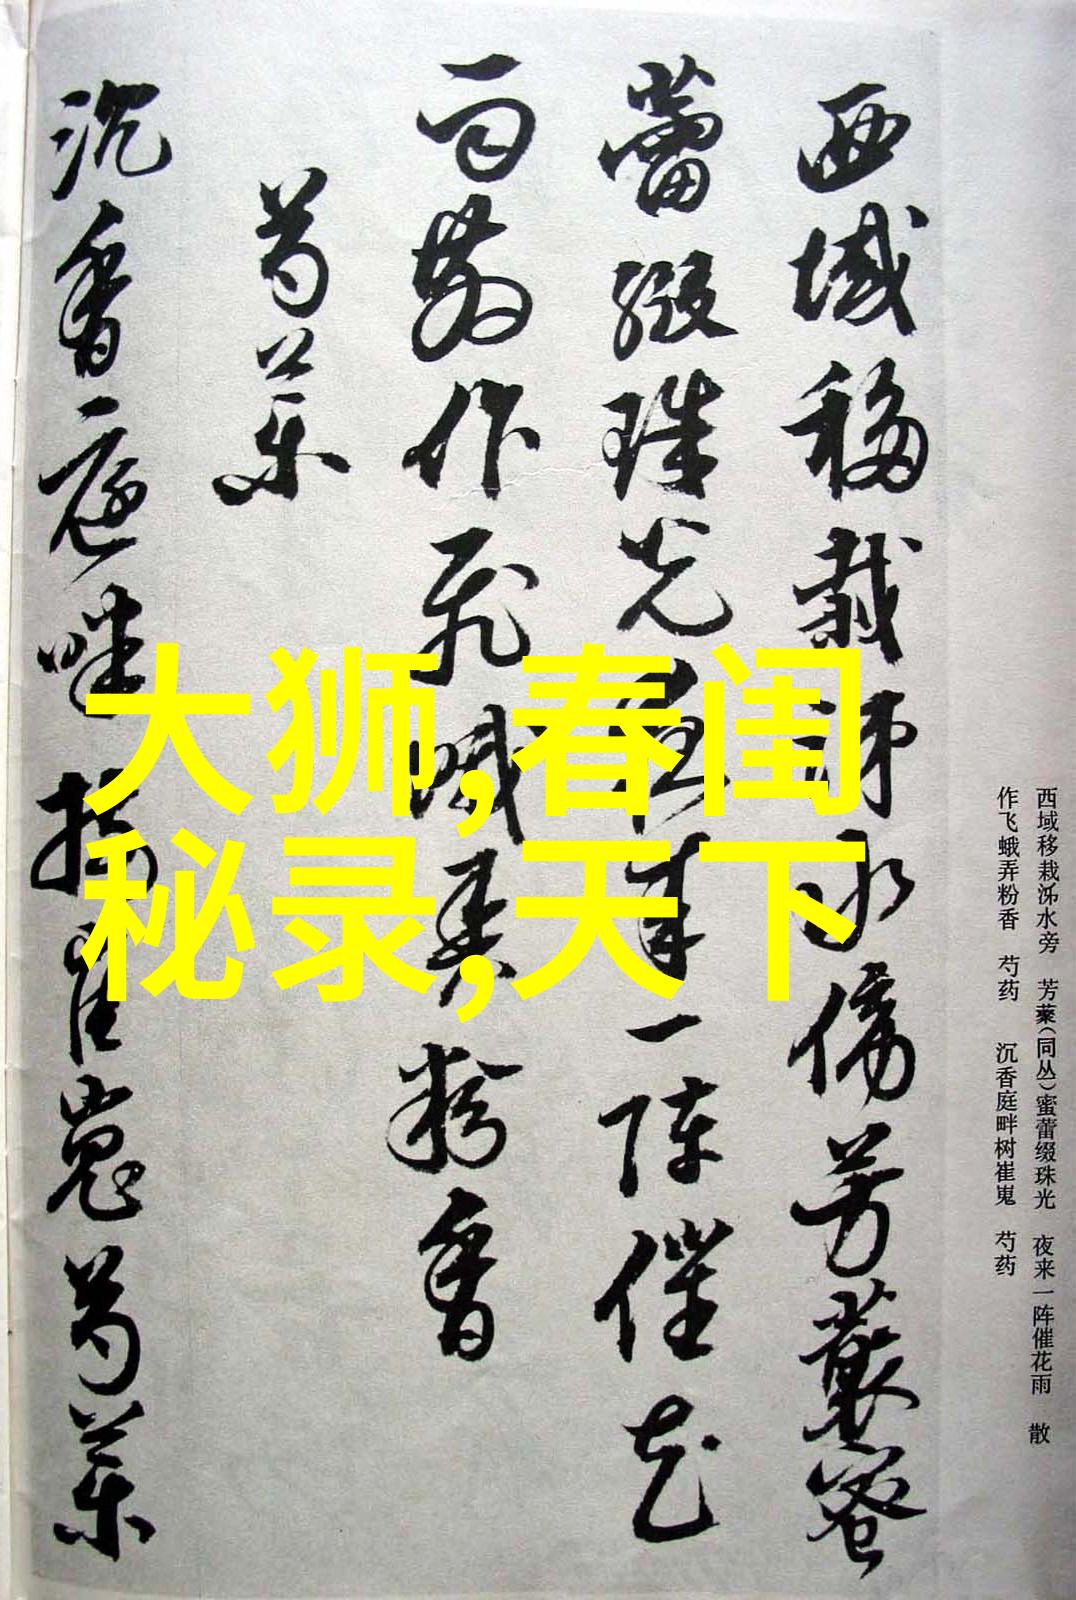 西域移栽沵水傍芳藂蜜
蕾缀珠光夜来一阵催花
雨散作飞蛾弄粉香
芍药
沉香庭畔树崔嵬芍药
大狮,春闺
秘录,天下
西域移栽沵水旁 芳藂(同丛)蜜蕾缀珠光 夜来一阵催花雨 散
作飞蛾弄粉香 芍药 沉香庭畔树崔嵬 芍药